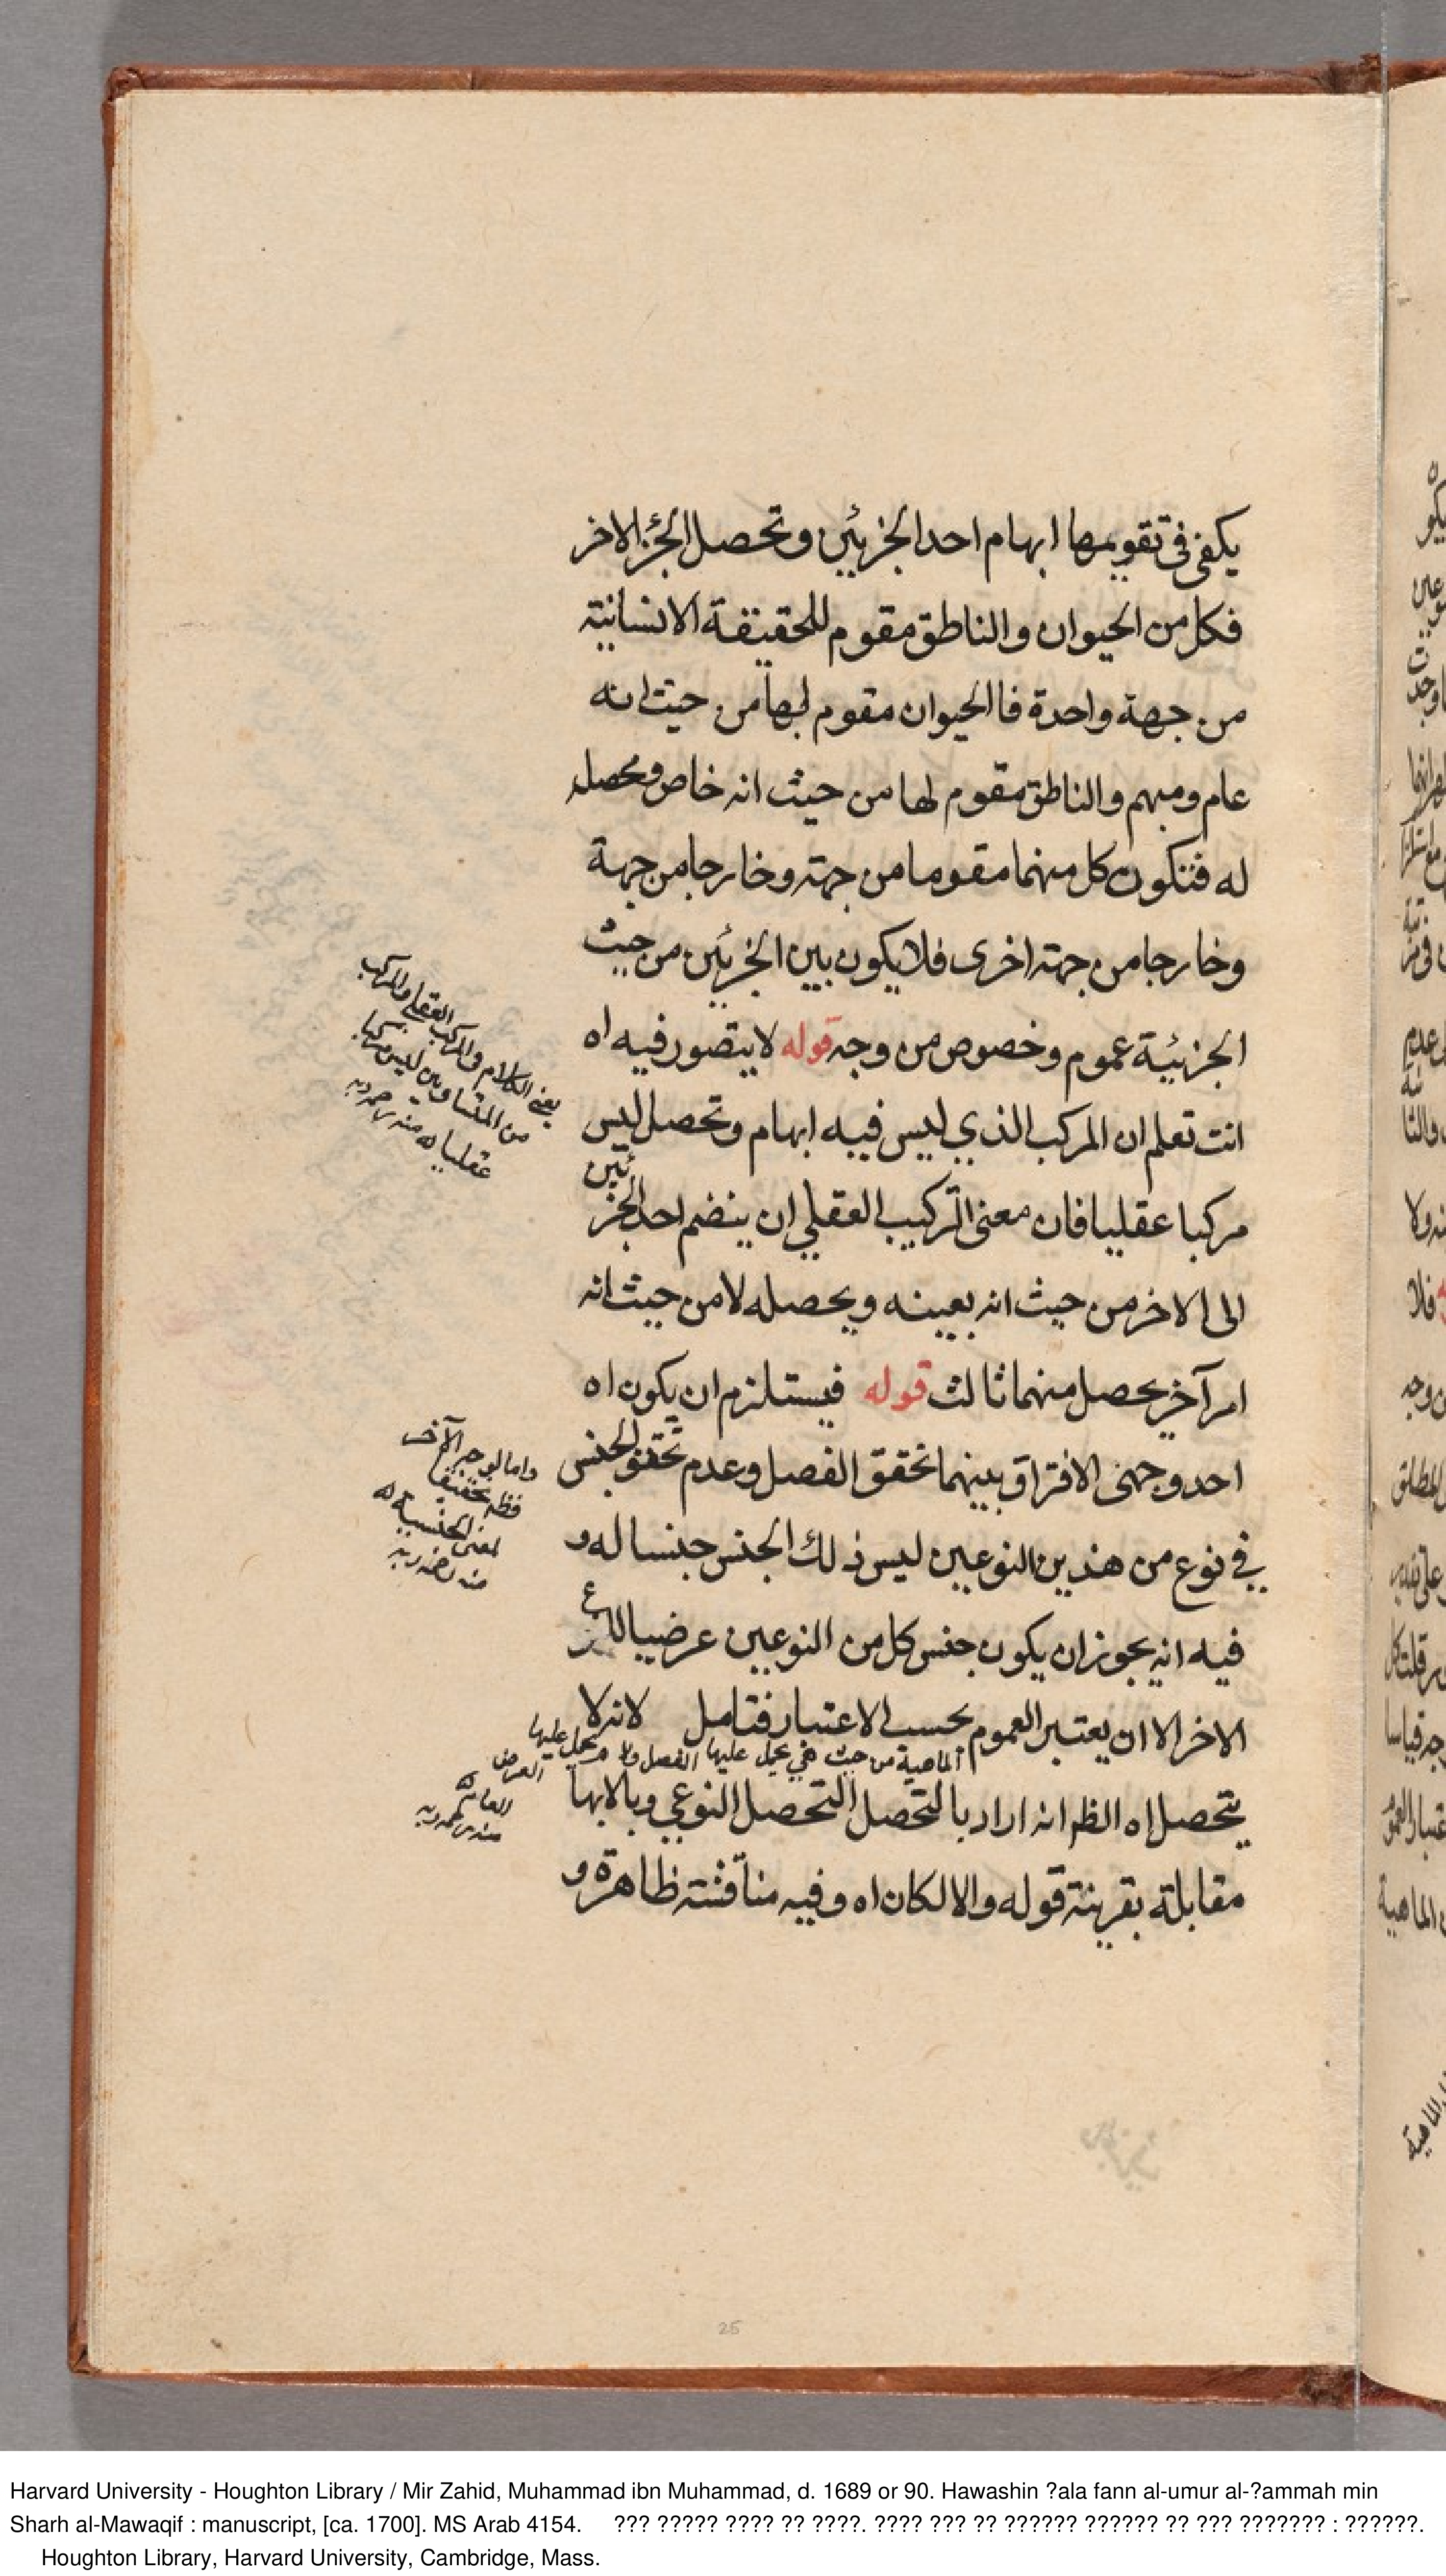 يكفى فى تقويمها ابهام احد الجزئين وتحصل الجزء الاخر
فكل من الحيوان والناطق مقوم للحقيقة الانسانية
من جهة واحدة فالحيوان مقوم لها من حيث انه
عام ومبهم والناطق مقوم لها من حيث انه خاص ومحصل
له فتكون كل منهما مقوما من جهته وخارجا من جهة
وخارجا من جهته اخرى فلا يكون بين الجزئين من حيث
الجزئية عموم وخصوص من وجه قوله لا يتصور فيه اه
انت تعلم ان المركب الذي ليس فيه ابهام وتحصل ليس
مركبا عقليا فان معنى التركيب العقلي ان ينضم احد الجزئين
الى الاخر من حيث انه يعينه ويحصله لا من حيث انه
امر آخر يحصل منهما ثالث قوله فيستلزم ان يكون اه
احد وجهى الافتراق بينهما تحقق الفصل وعدم تحقق الجنس
في نوع من هذين النوعين ليس ذلك الجنس جنسا له و
فيه انه يجوز ان يكون جنس كل من النوعين عرضيا للنوع
الاخر الا ان يعتبر العموم بحسب الاعتبار فتامل لانه لا
يتحصل اه الظ انه اراد بالتحصل التحصل النوعي وبالابها
مقابلة بقرينة قوله والا لكان اه وفيه مناقشة ظاهرة و
يعنى الكلام فى المركب العقلى والمركب
من المتساويين ليس مركبا
عقليا منه
واما
لمعنى الجنسية
منه
الماهية من حيث هي يحمل عليها الفصل ولا يحمل عليها
العرض
العام
منه
25
Harvard University - Houghton Library / Mir Zahid, Muhammad ibn Muhammad, d. 1689 or 90. Hawashin ?ala fann al-umur al-?ammah min
Sharh al-Mawaqif : manuscript, [ca. 1700]. MS Arab 4154. ??? ????? ???? ?? ????. ???? ??? ?? ?????? ?????? ?? ??? ??????? : ??????.
Houghton Library, Harvard University, Cambridge, Mass.